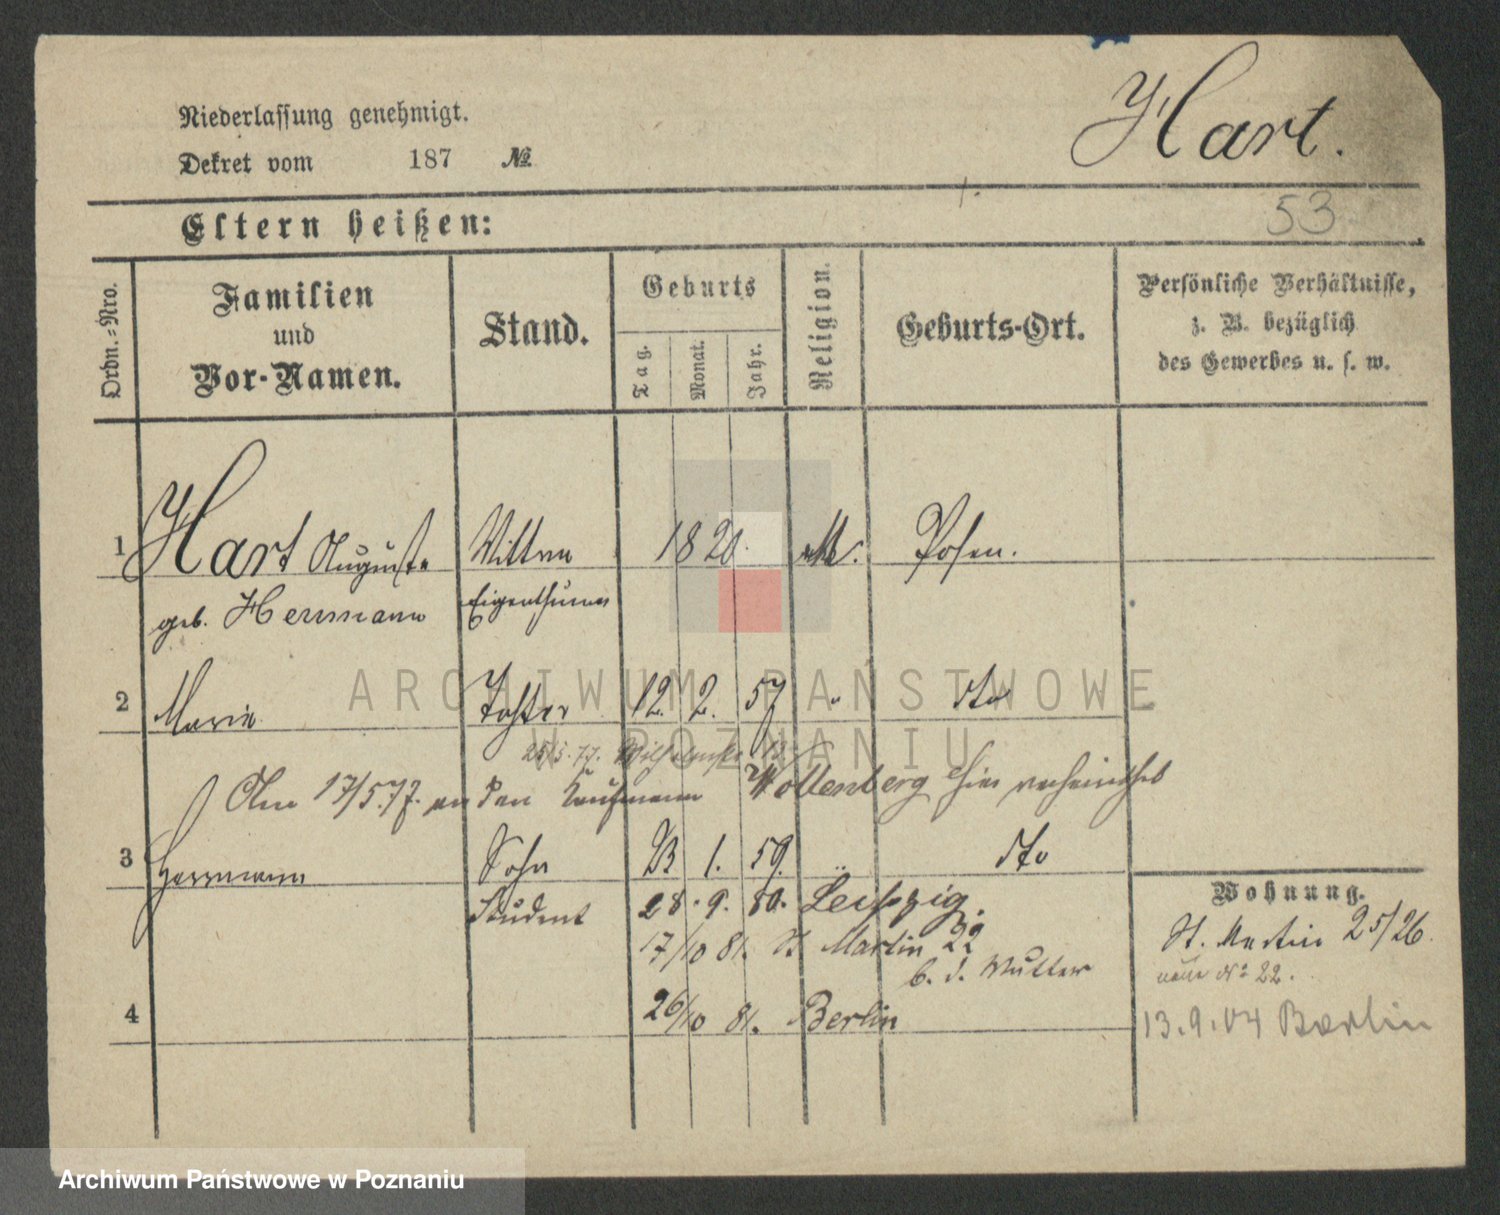 Niederlassung genehmigt.
Dekret vom 187 №
Hart.
Eltern heißen:
53
Ordn.-Nro.
Familien
und
Vor-Namen.
Stand.
Geburts
Tag.
Monat.
Jahr.
Religion.
Geburts-Ort.
Persönliche Verhältnisse,
z. B. bezüglich
des Gewerbes u. s. w.
1 Hart Auguste Wittwe 1820. Posen.
geb. Herrmann Eigenthümer
2 Marie Tochter 12. 2. 57 " dto
25/5.77.
Am 17/5.77. an den Kaufmann Wollenberg hier verheirathet
3 Herrmann Sohn 1. 59. " dto
Student 28. 9. 80. Leipzig.
17/10 81. St Martin 22
b. d. Mutter
4 26/10 81. Berlin
Wohnung.
St. Martin 25/26.
neue № 22.
13.9.04 Berlin
ARCHIWUM PAŃSTWOWE
W POZNANIU
Archiwum Państwowe w Poznaniu